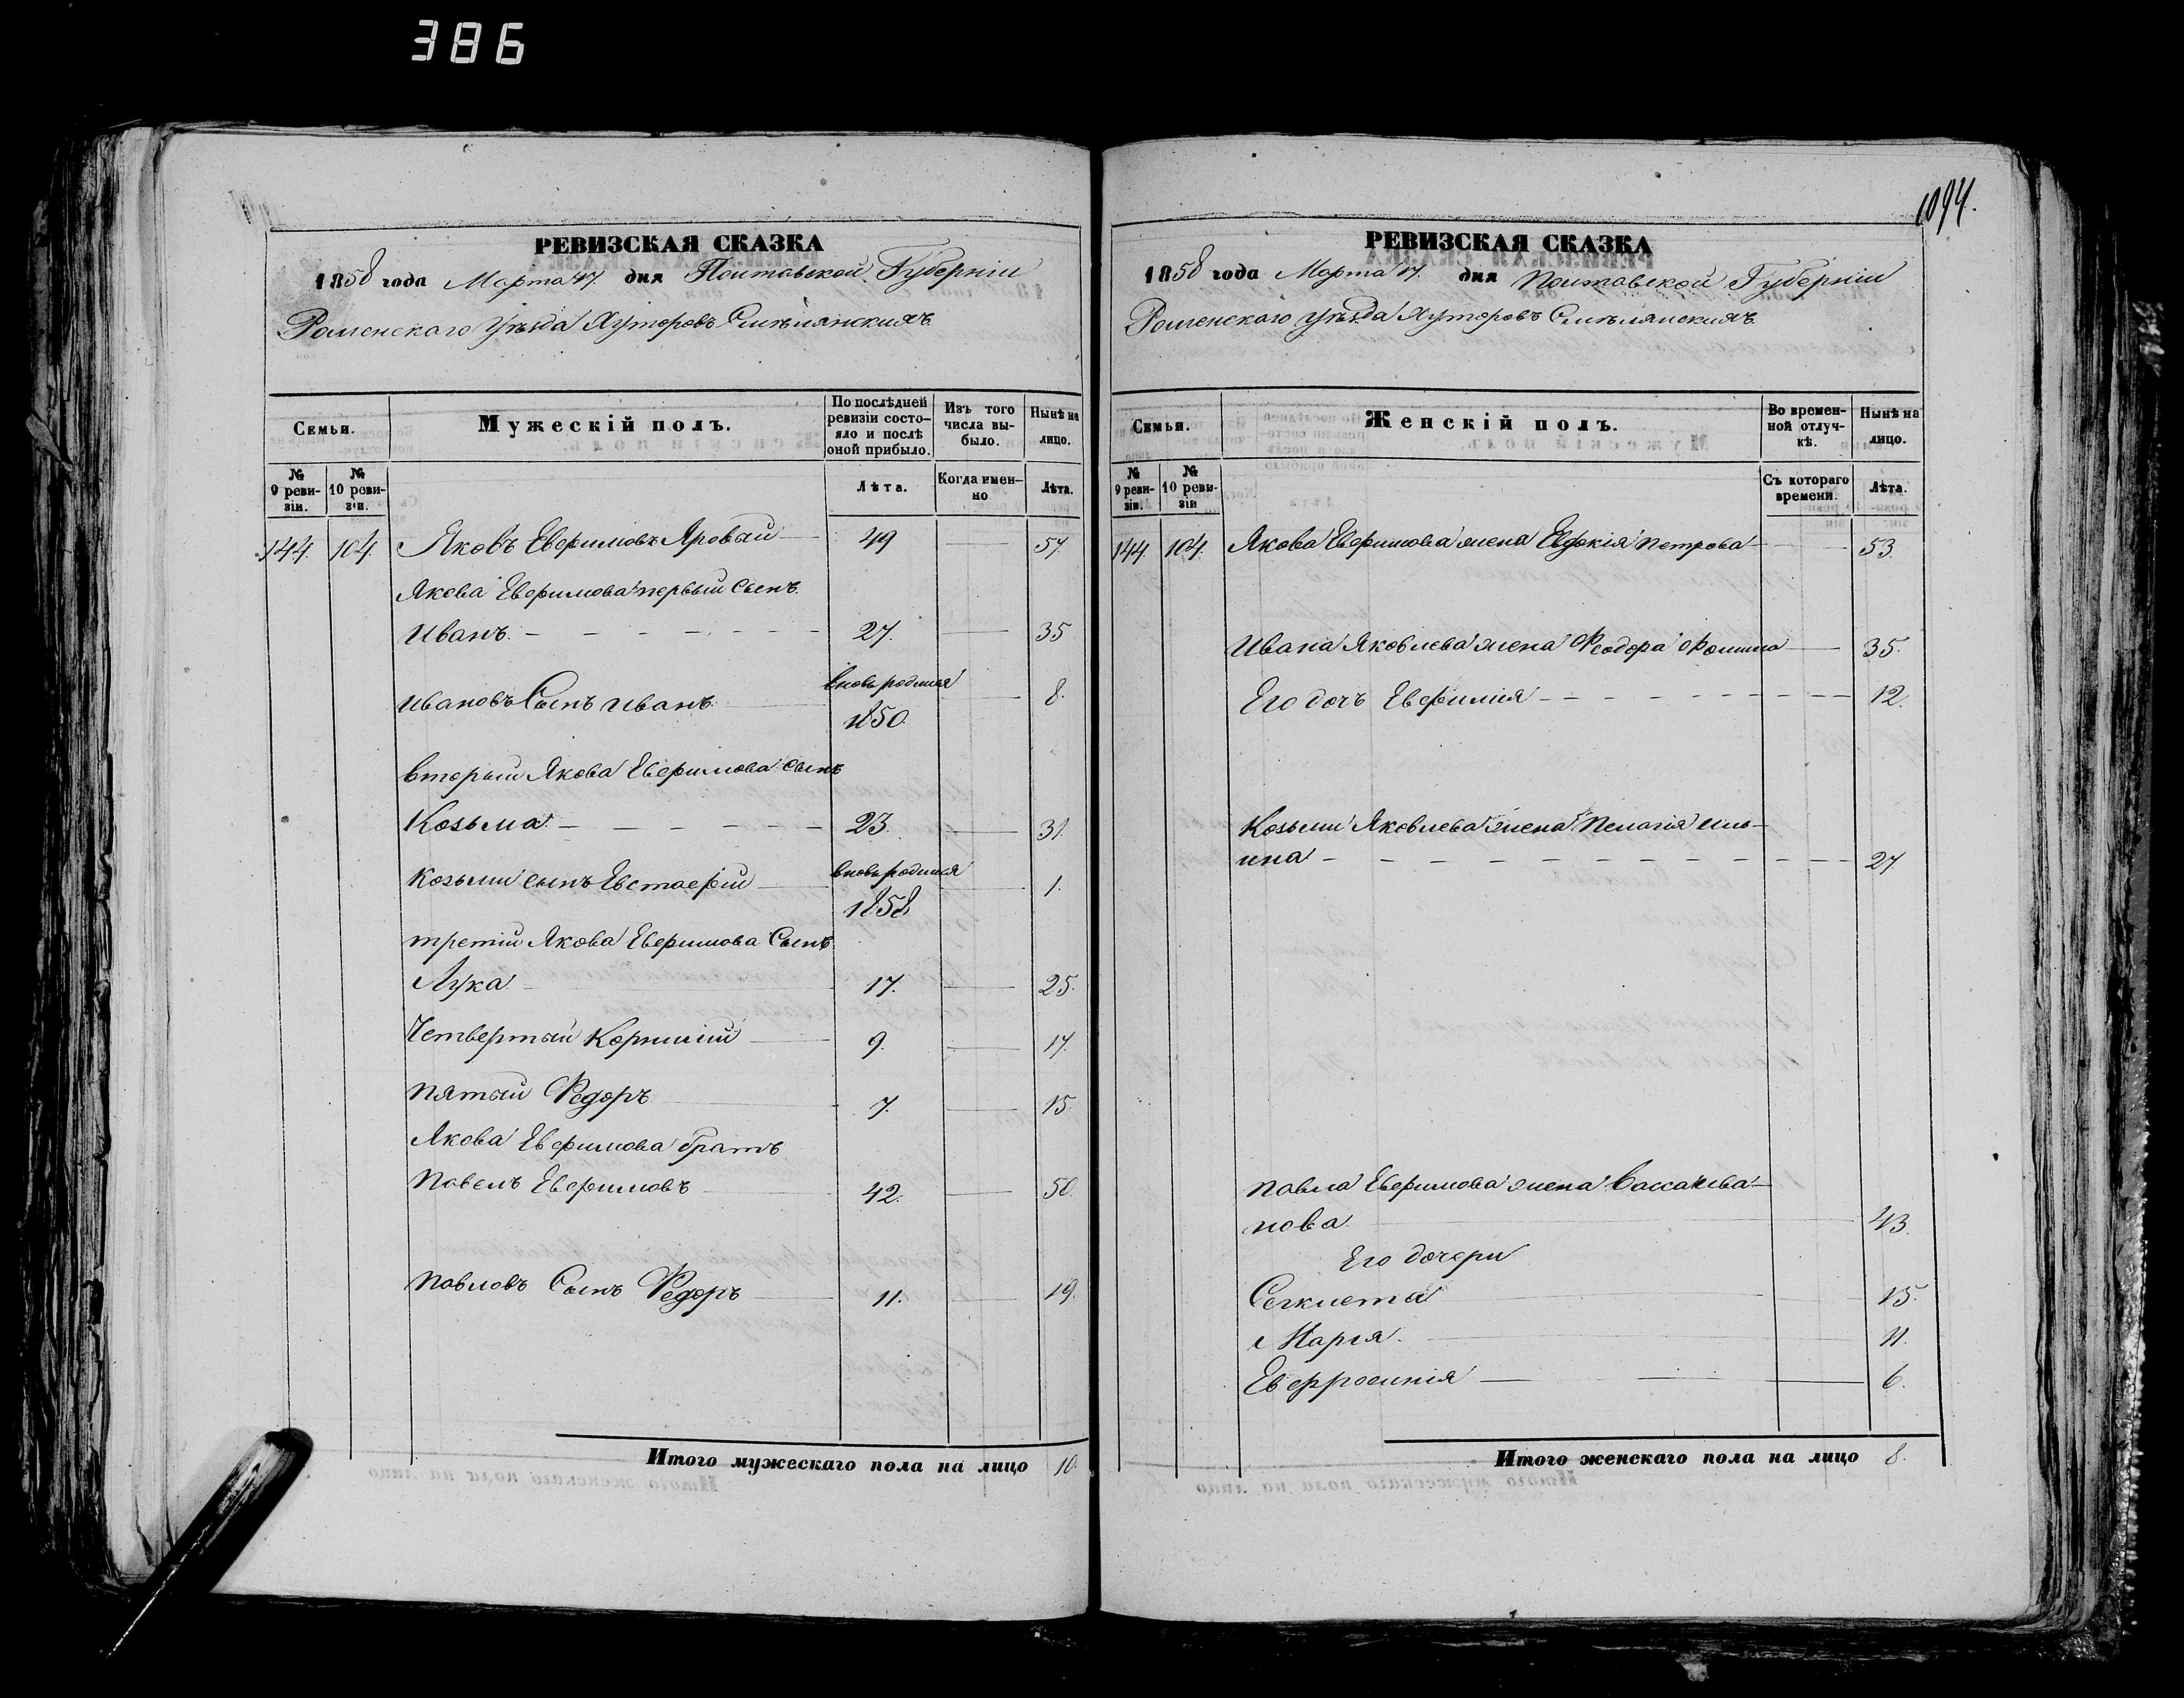 386
1094.
РЕВИЗСКАЯ СКАЗКА
1858 года Марта 17. дня Полтавской Губерніи
Роменскаго Уѣзда Хуторовъ Смѣлянскихъ
Семьи.
Мужескій полъ.
По послѣдней ревизіи состояло и послѣ оной прибыло.
Изъ того числа выбыло.
Нынѣ на лицо.
№ 9 ревизіи.
№ 10 ревизіи.
Лѣта.
Когда именно
Лѣта.
144. 104. Яковъ Евфимовъ Яровый 49 57.
Якова Евфимова первый сынъ
Иванъ. 27. 35
Ивановъ Сынъ Иванъ вновь родился 1850. 8.
вторый Якова Евфимова сынъ
Козьма 23. 31.
Козьмы сынъ Евстафій вновь родился 1858 1.
третій Якова Евфимова Сынъ
Лука 17. 25.
Четвертый Корнилій 9. 17.
пятый Федоръ 7. 15.
Якова Евфимова братъ
Павелъ Евфимовъ 42. 50.
Павловъ Сынъ Федоръ 11. 19.
Итого мужескаго пола на лицо 10.
РЕВИЗСКАЯ СКАЗКА
1858 года Марта 17. дня Полтавской Губерніи
Роменскаго Уѣзда Хуторовъ Смѣлянскихъ
Семьи.
Женскій полъ.
Во временной отлучкѣ.
Нынѣ на лицо.
№ 9 ревизіи.
№ 10 ревизіи
Съ котораго времени.
Лѣта.
144. 104. Якова Евфимова жена Евдокія Петрова 53.
Ивана Яковлева жена Феодора Фомина 35.
Его дочь Евфимія 12.
Козьмы Яковлева жена Пелагія Иль-
ина 27.
Павла Евфимова жена Васса Ива-
нова 43.
Его дочери
15.
Марія. 11.
Евфросинія 6.
Итого женскаго пола на лицо 8.